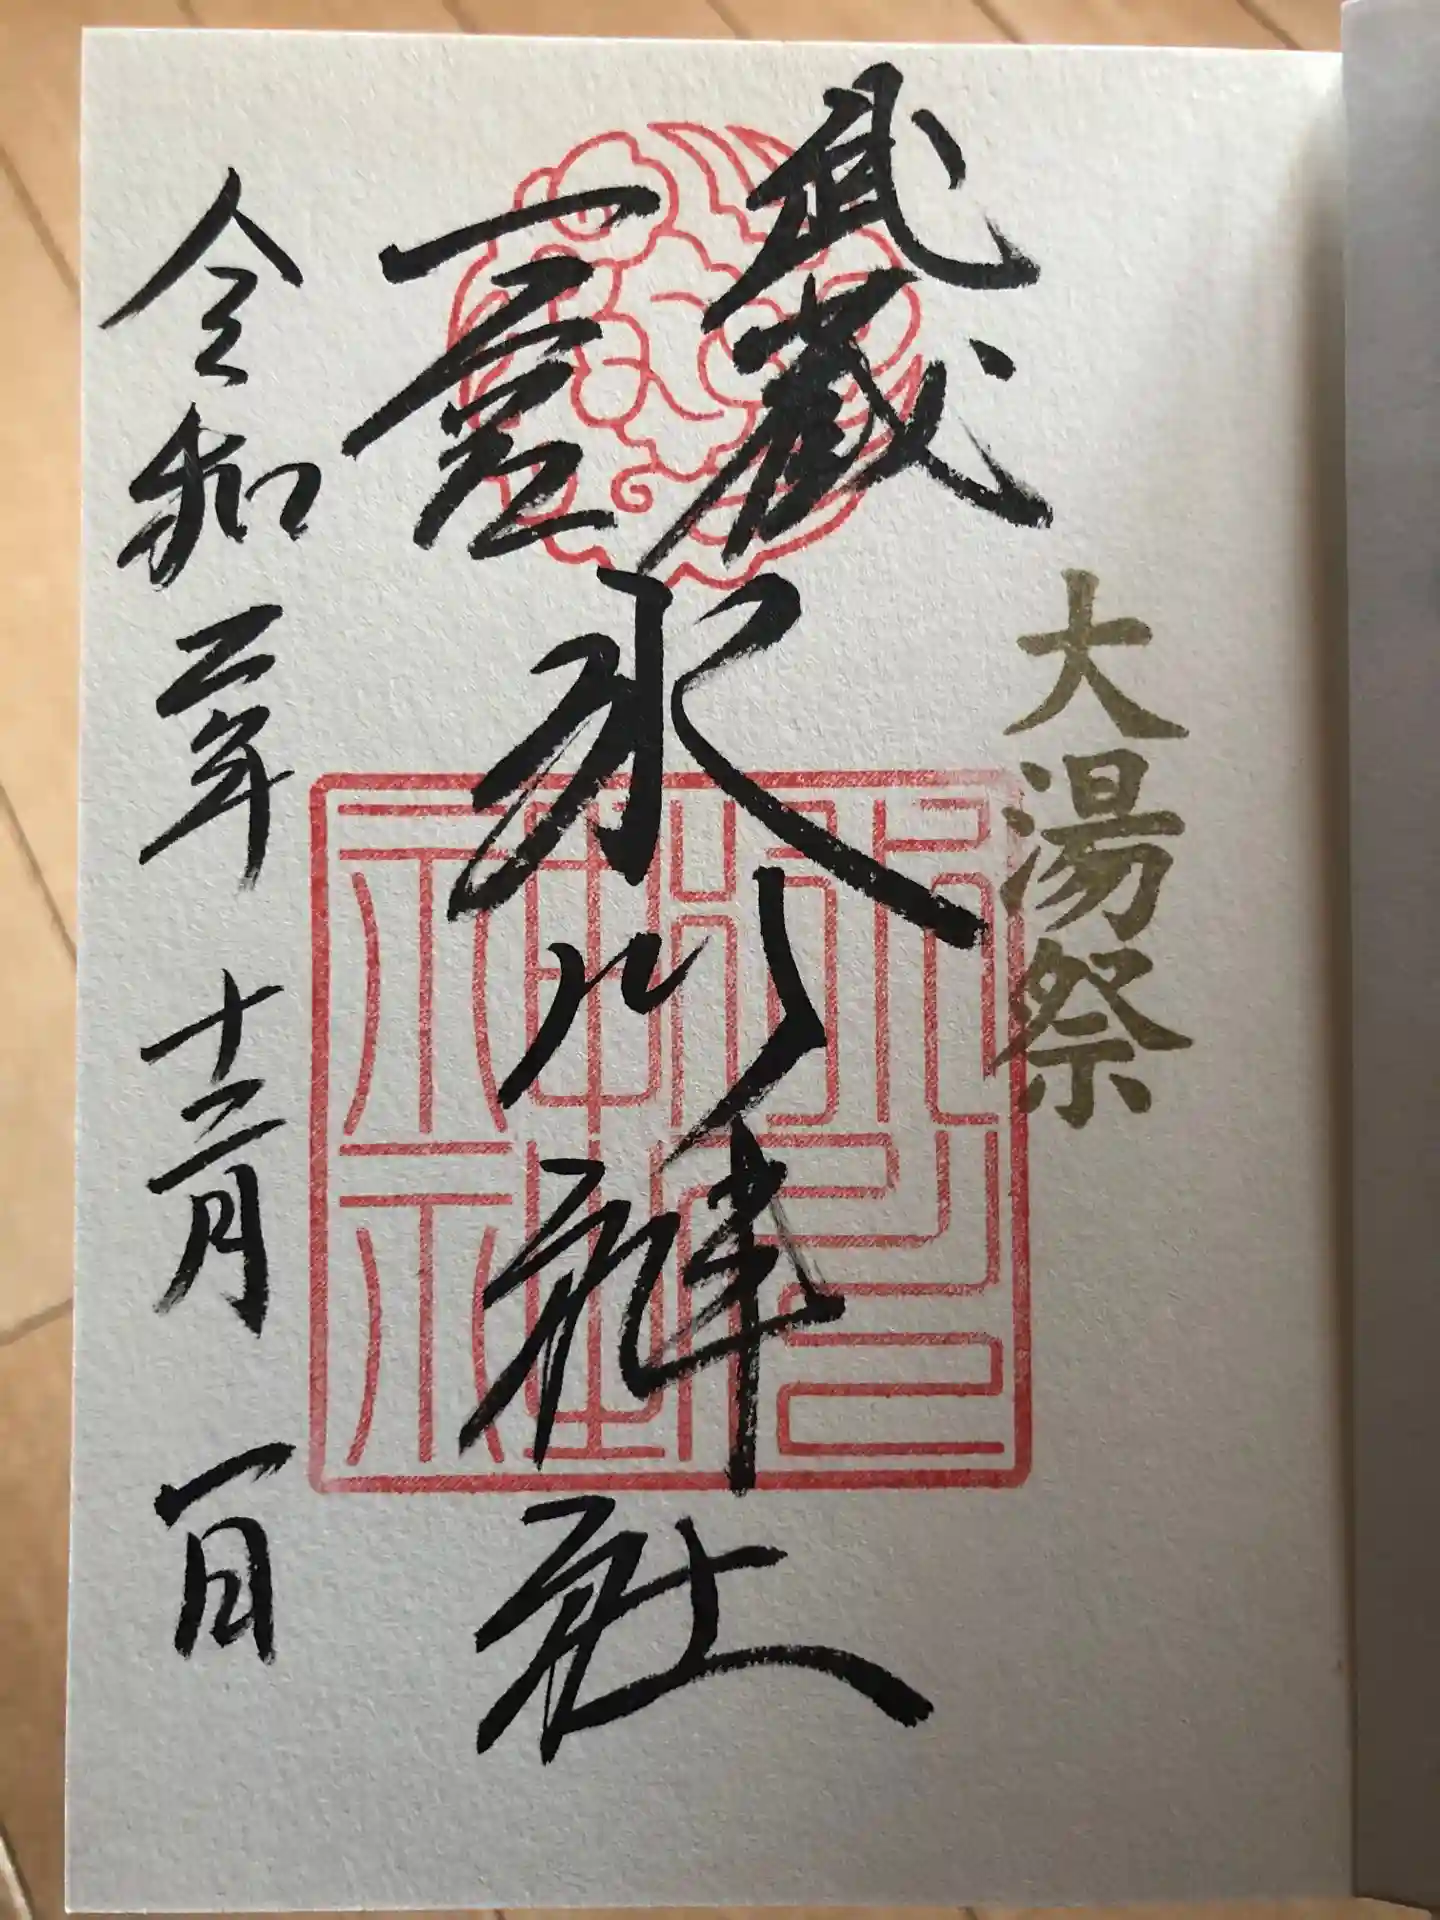 大湯祭
武蔵
一宮
氷川神社
令和二年十二月一日
氷川神社